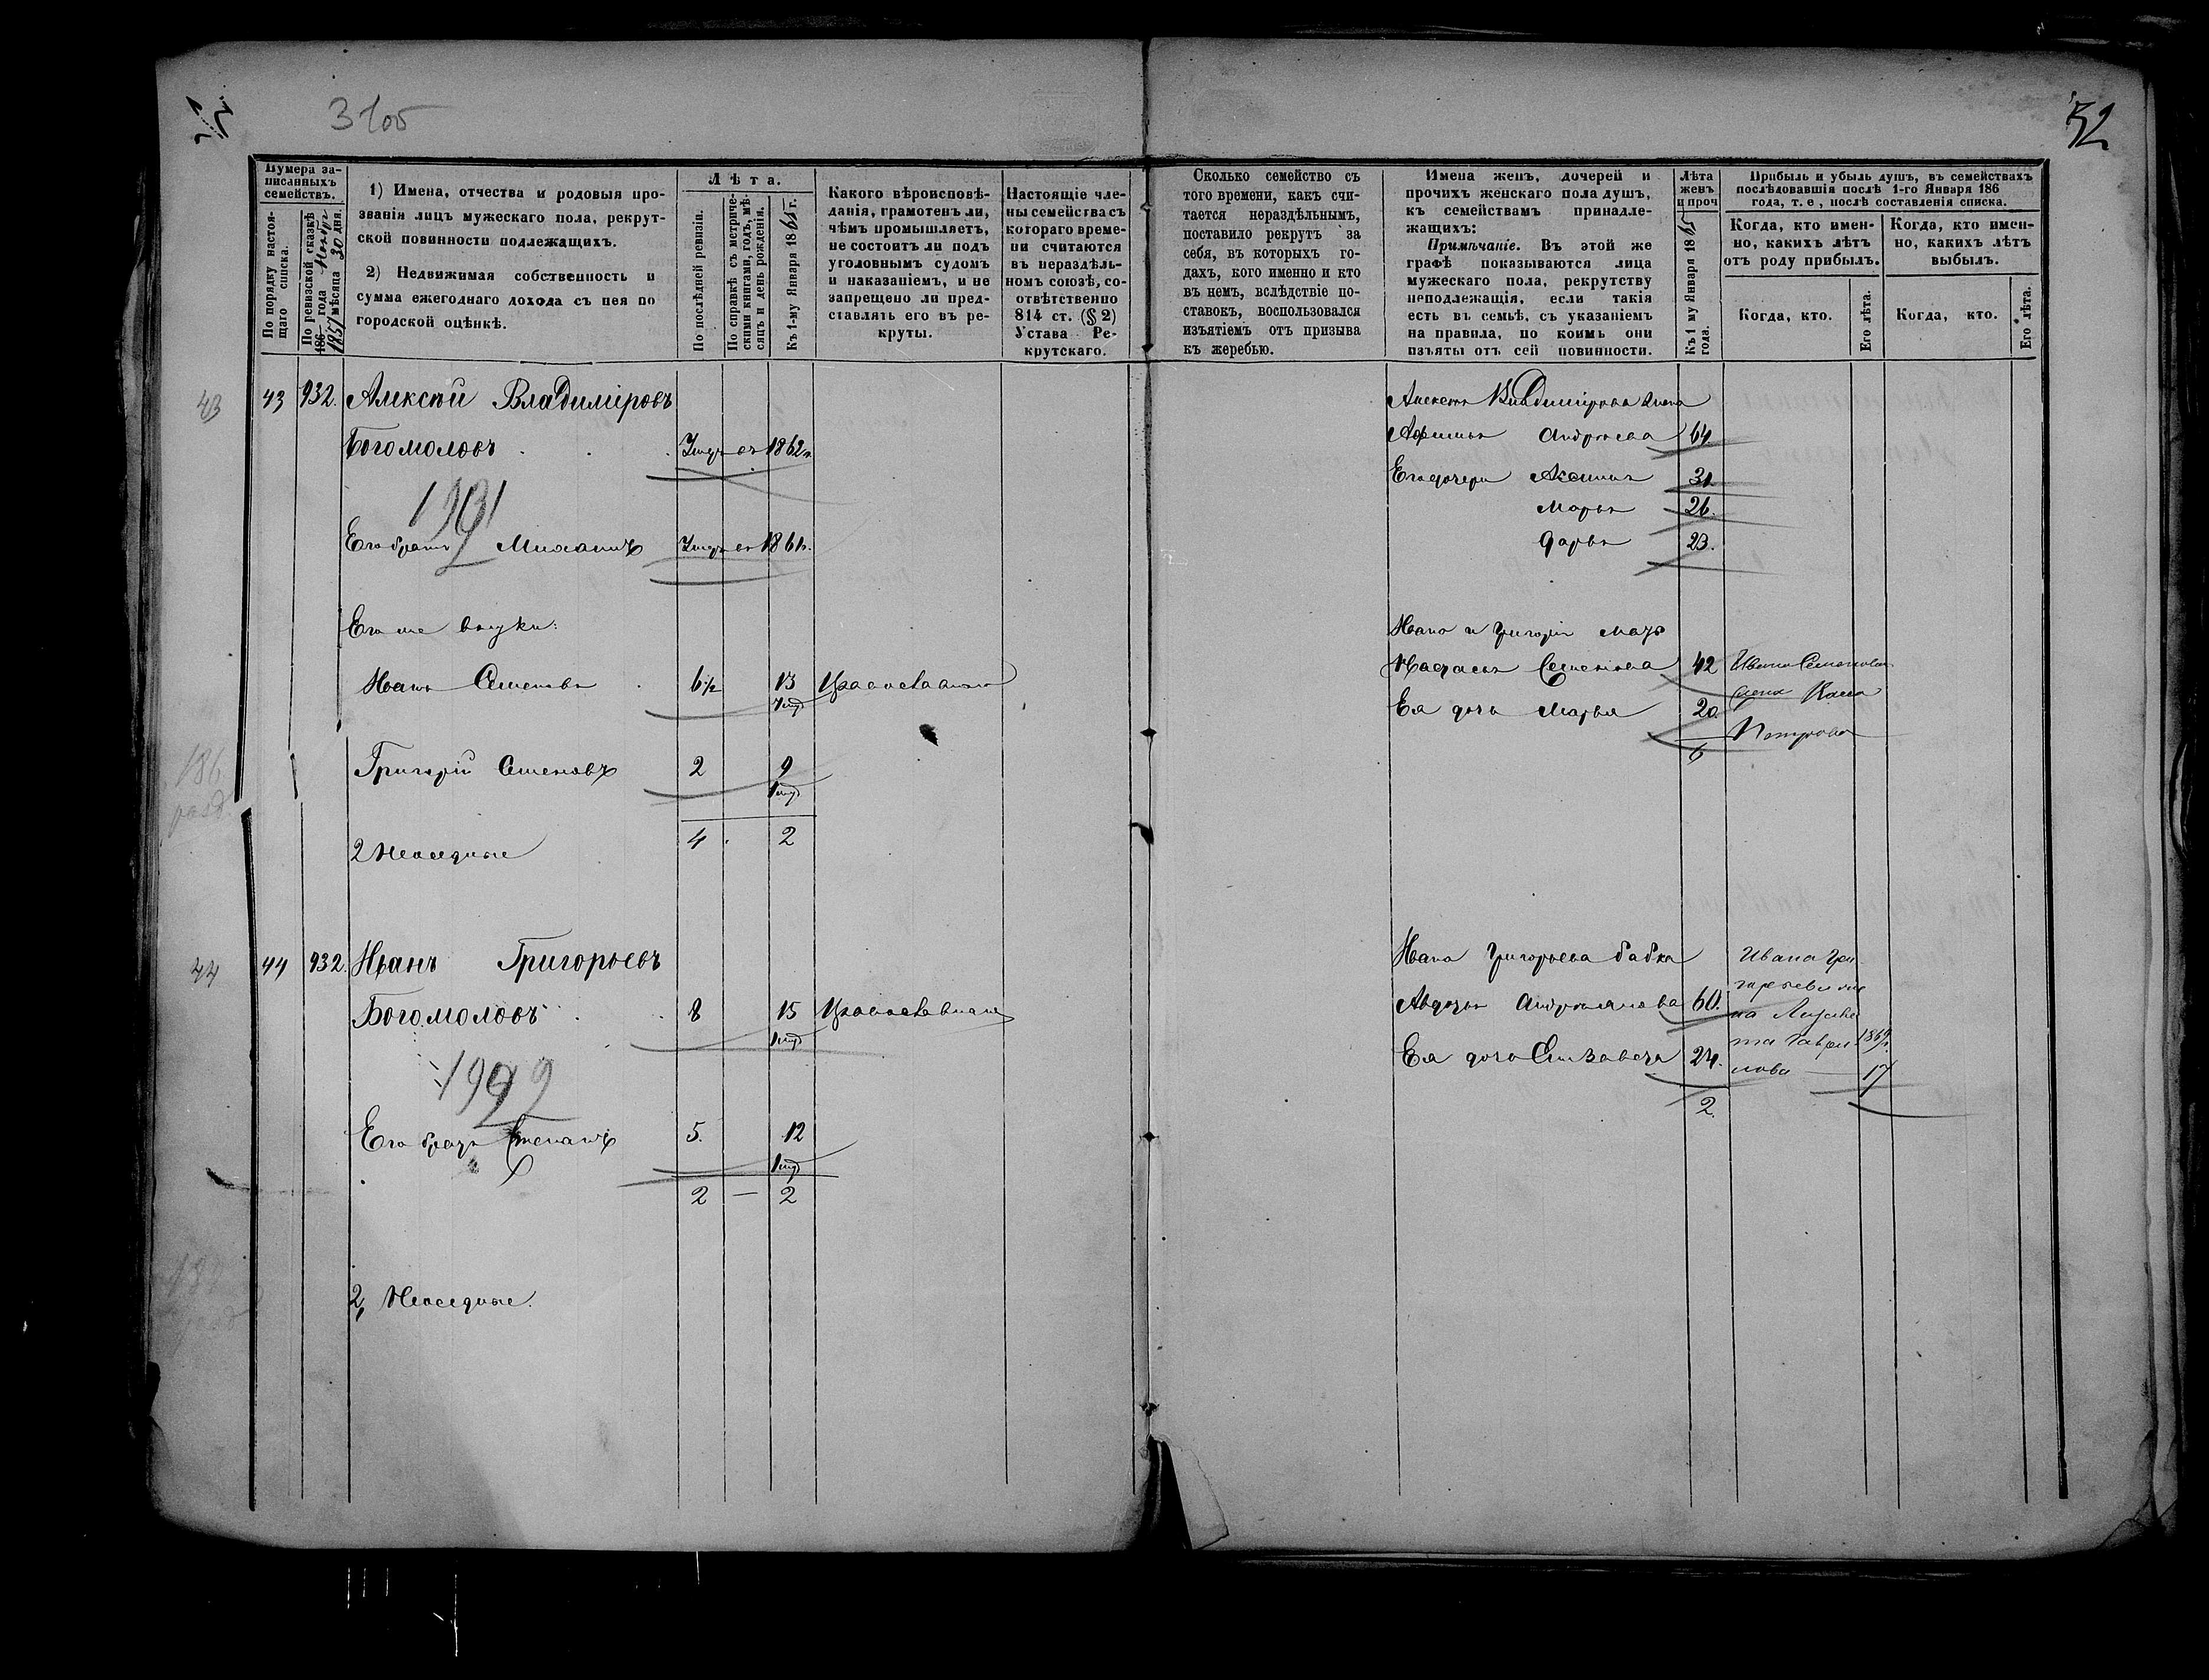 52
Нумера за-
писанныхъ
семействъ.
По порядку настоя-
щаго списка.
По ревизской сказкѣ
186 года
1857 мѣсяца 30 дня.
1) Имена, отчества и родовыя про-
званія лицъ мужескаго пола, рекрут-
ской повинности подлежащихъ.
2) Недвижимая собственность и
сумма ежегоднаго дохода съ нея по
городской оцѣнкѣ.
Лѣта.
По послѣдней ревизіи.
По справкѣ съ метриче-
скими книгами, годъ, мѣ-
сяцъ и день рожденія.
Къ 1-му Января 1865 г.
Какого вѣроисповѣ-
данія, грамотенъ ли,
чѣмъ промышляетъ,
не состоитъ ли подъ
уголовнымъ судомъ
и наказаніемъ, и не
запрещено ли пред-
ставлять его въ ре-
круты.
Настоящіе чле-
ны семейства съ
котораго време-
ни считаются
въ нераздѣль-
номъ союзѣ, со-
отвѣтственно
814 ст. (§ 2)
Устава Ре-
крутскаго.
Сколько семейство съ
того времени, какъ счи-
тается нераздѣльнымъ,
поставило рекрутъ за
себя, въ которыхъ го-
дахъ, кого именно и кто
въ немъ, вслѣдствіе по-
ставокъ, воспользовался
изъятіемъ отъ призыва
къ жеребью.
Имена женъ, дочерей и
прочихъ женскаго пола душъ,
къ семействамъ принадле-
жащихъ:
Примѣчаніе. Въ этой же
графѣ показываются лица
мужескаго пола, рекрутству
неподлежащія, если такія
есть въ семьѣ, съ указаніемъ
на правила, по коимъ они
изъяты отъ сей повинности.
Лѣта
женъ
и проч
Къ 1 му Января 1865
года.
Прибыль и убыль душъ, въ семействахъ
послѣдовавшія послѣ 1-го Января 186
года, т. е, послѣ составленія списка.
Когда, кто имен-
но, какихъ лѣтъ
отъ роду прибылъ.
Когда, кто имен-
но, какихъ лѣтъ
выбылъ.
Когда, кто.
Его лѣта.
Когда, кто.
Его лѣта.
43 43 932. Алексѣй Владиміровъ
Богомоловъ Умеръ въ 1862 г.
Его братъ Михаилъ Умеръ въ 1861 г.
Его же внуки:
Иванъ Семеновъ 6½ 13 Православнаго
Григорій Семеновъ 2 9
4 2
2 Неоседлые
Владимірова жена
Андреева 64
Его дочери Аксинья 31
Марья 26.
Дарья 23.
Ивана и Григорія мать
Семенова 42 Ивана Семенова
жена
Ея дочь Марья 20.
Петрова
6
44 44 932. Иванъ Григорьевъ
Богомоловъ 8 15 Православнаго
1922
Его братъ Степанъ 5. 12
2 — 2
2, Неоседлые.
Ивана Григорьева бабка
Авдотья Андреянова 60.
Ея дочь Елизавета 24.
2.
Ивана Гри-
горьева же-
на Лизаве-
та Гаври- 1869 г.
лова — 17